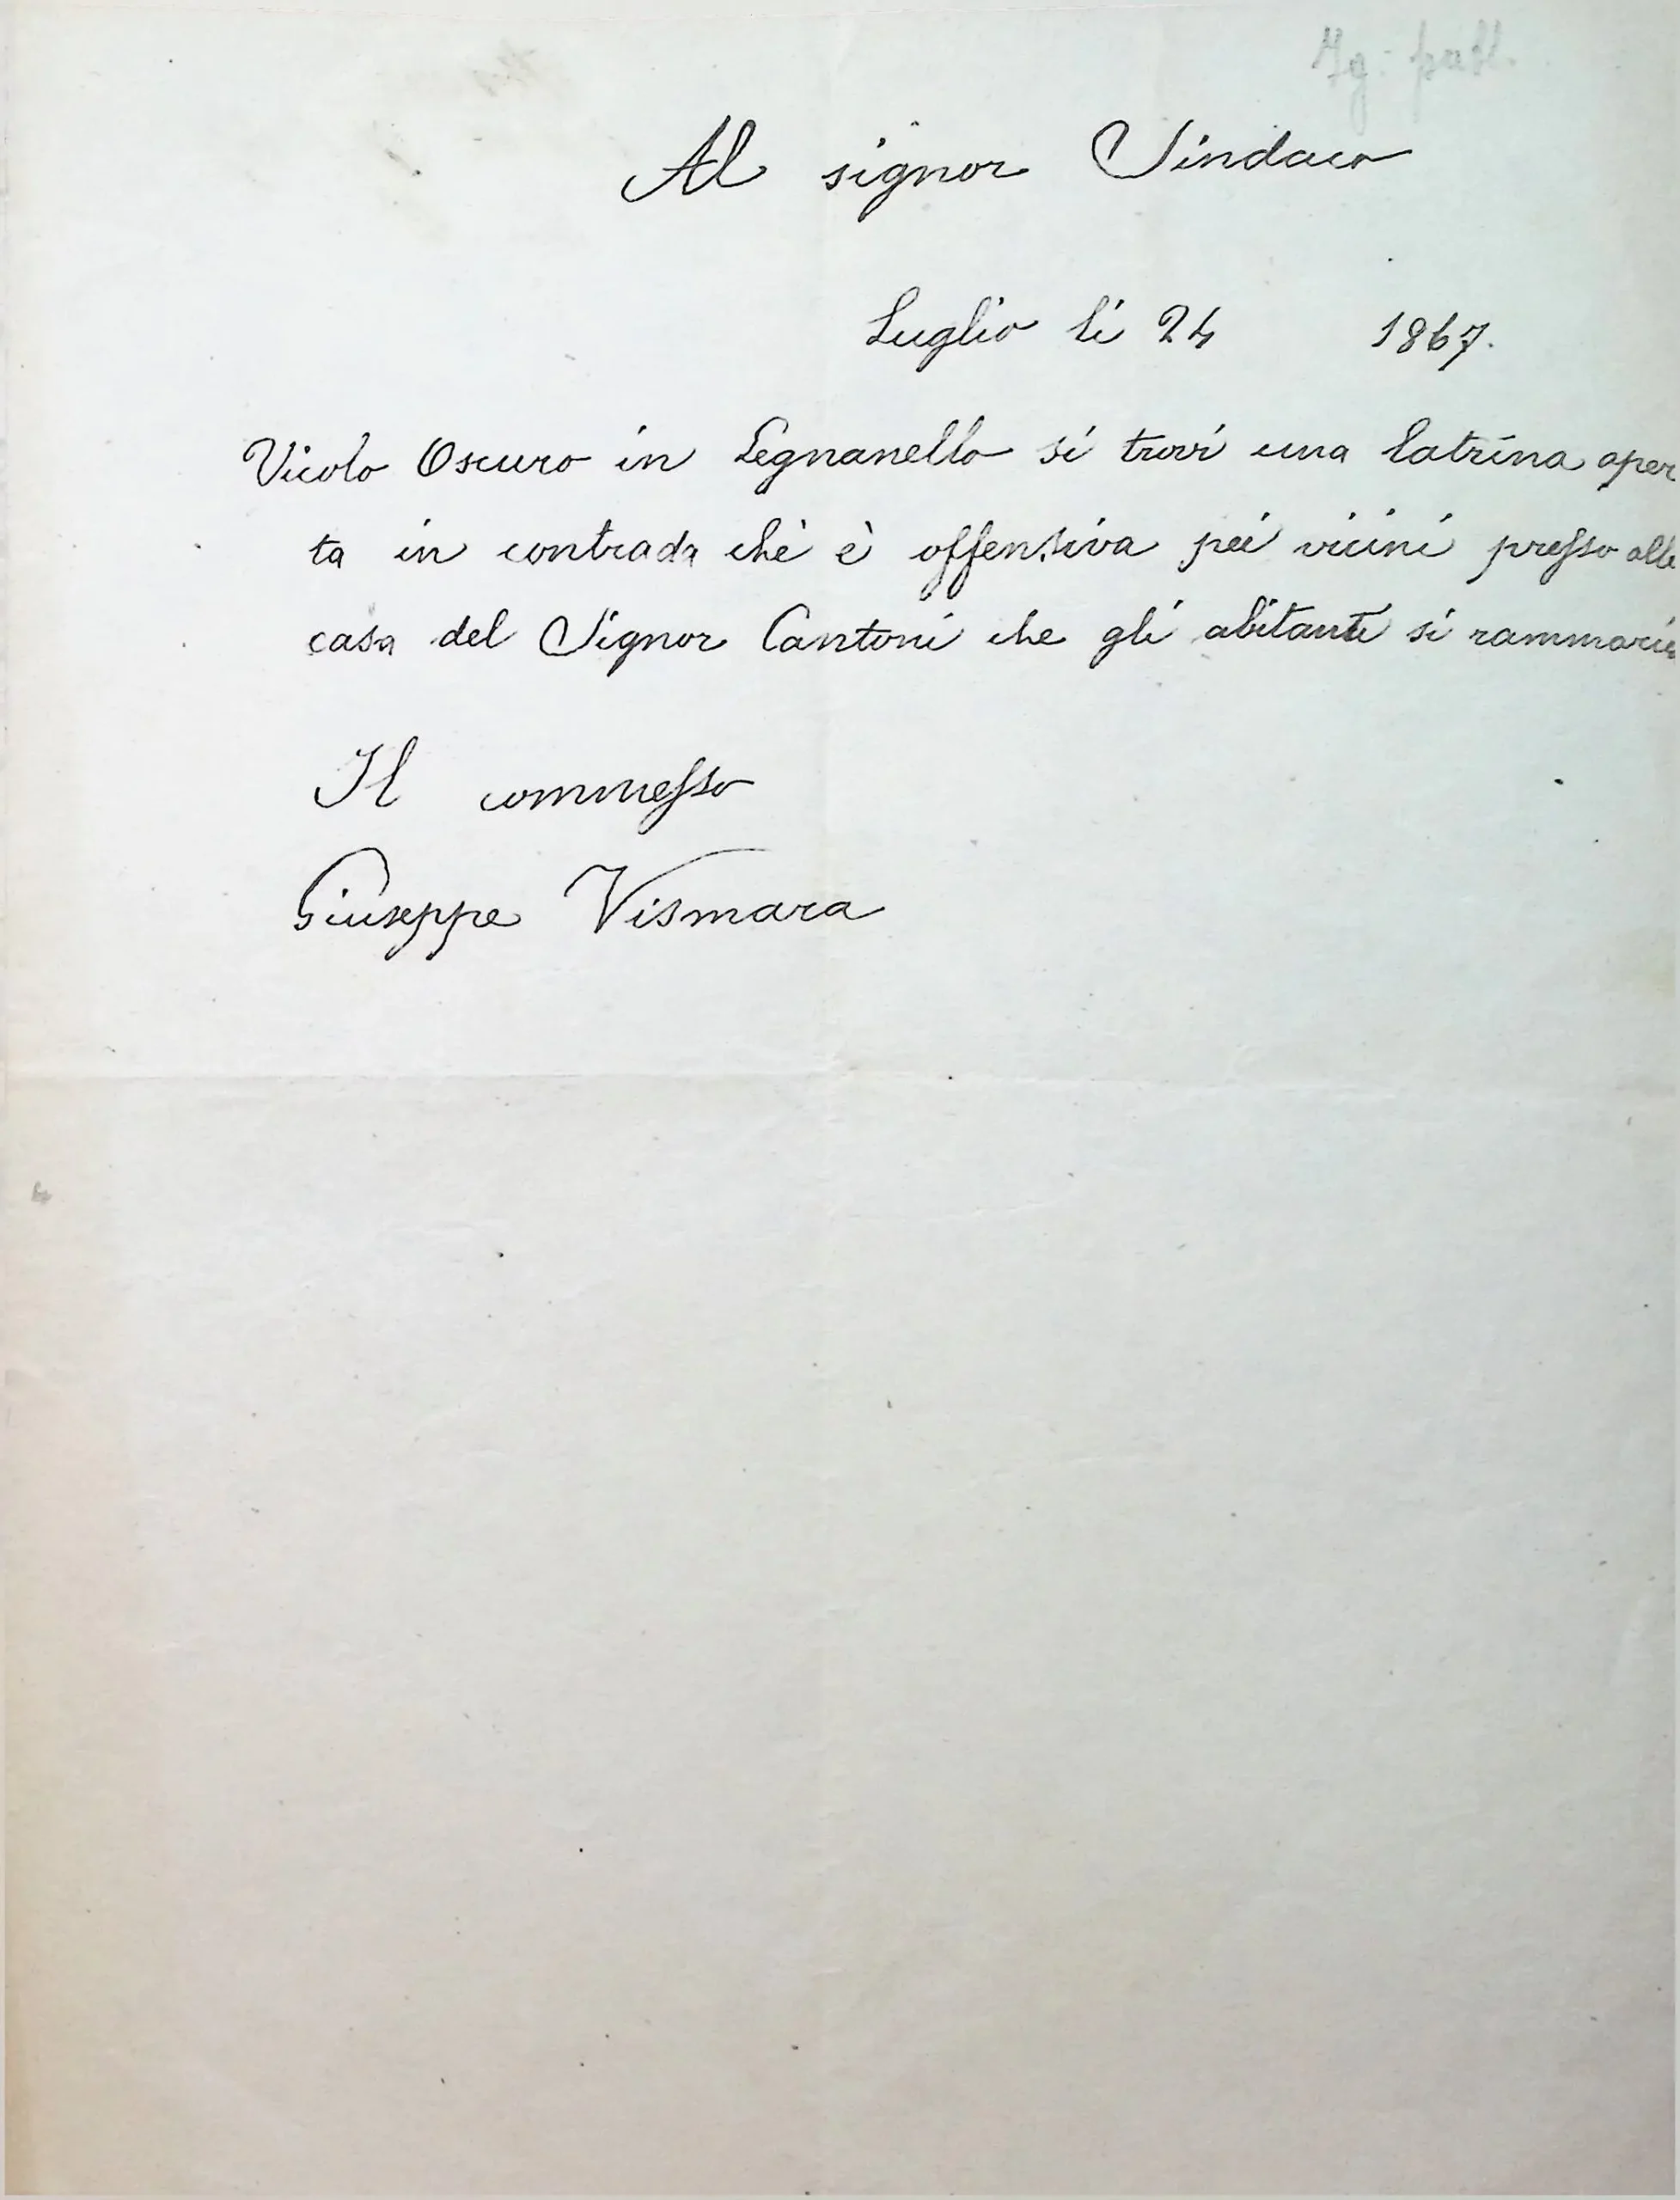 Ig: pubbl.
Al signor Sindaco
Luglio li 24 1867.
Vicolo Oscuro in Legnanello si trovi una latrina aper
ta in contrada chè è offensiva pei vicini presso alla
casa del Signor Cantoni che gli abitanti si rammaric
Il commesso
Giuseppe Vismara